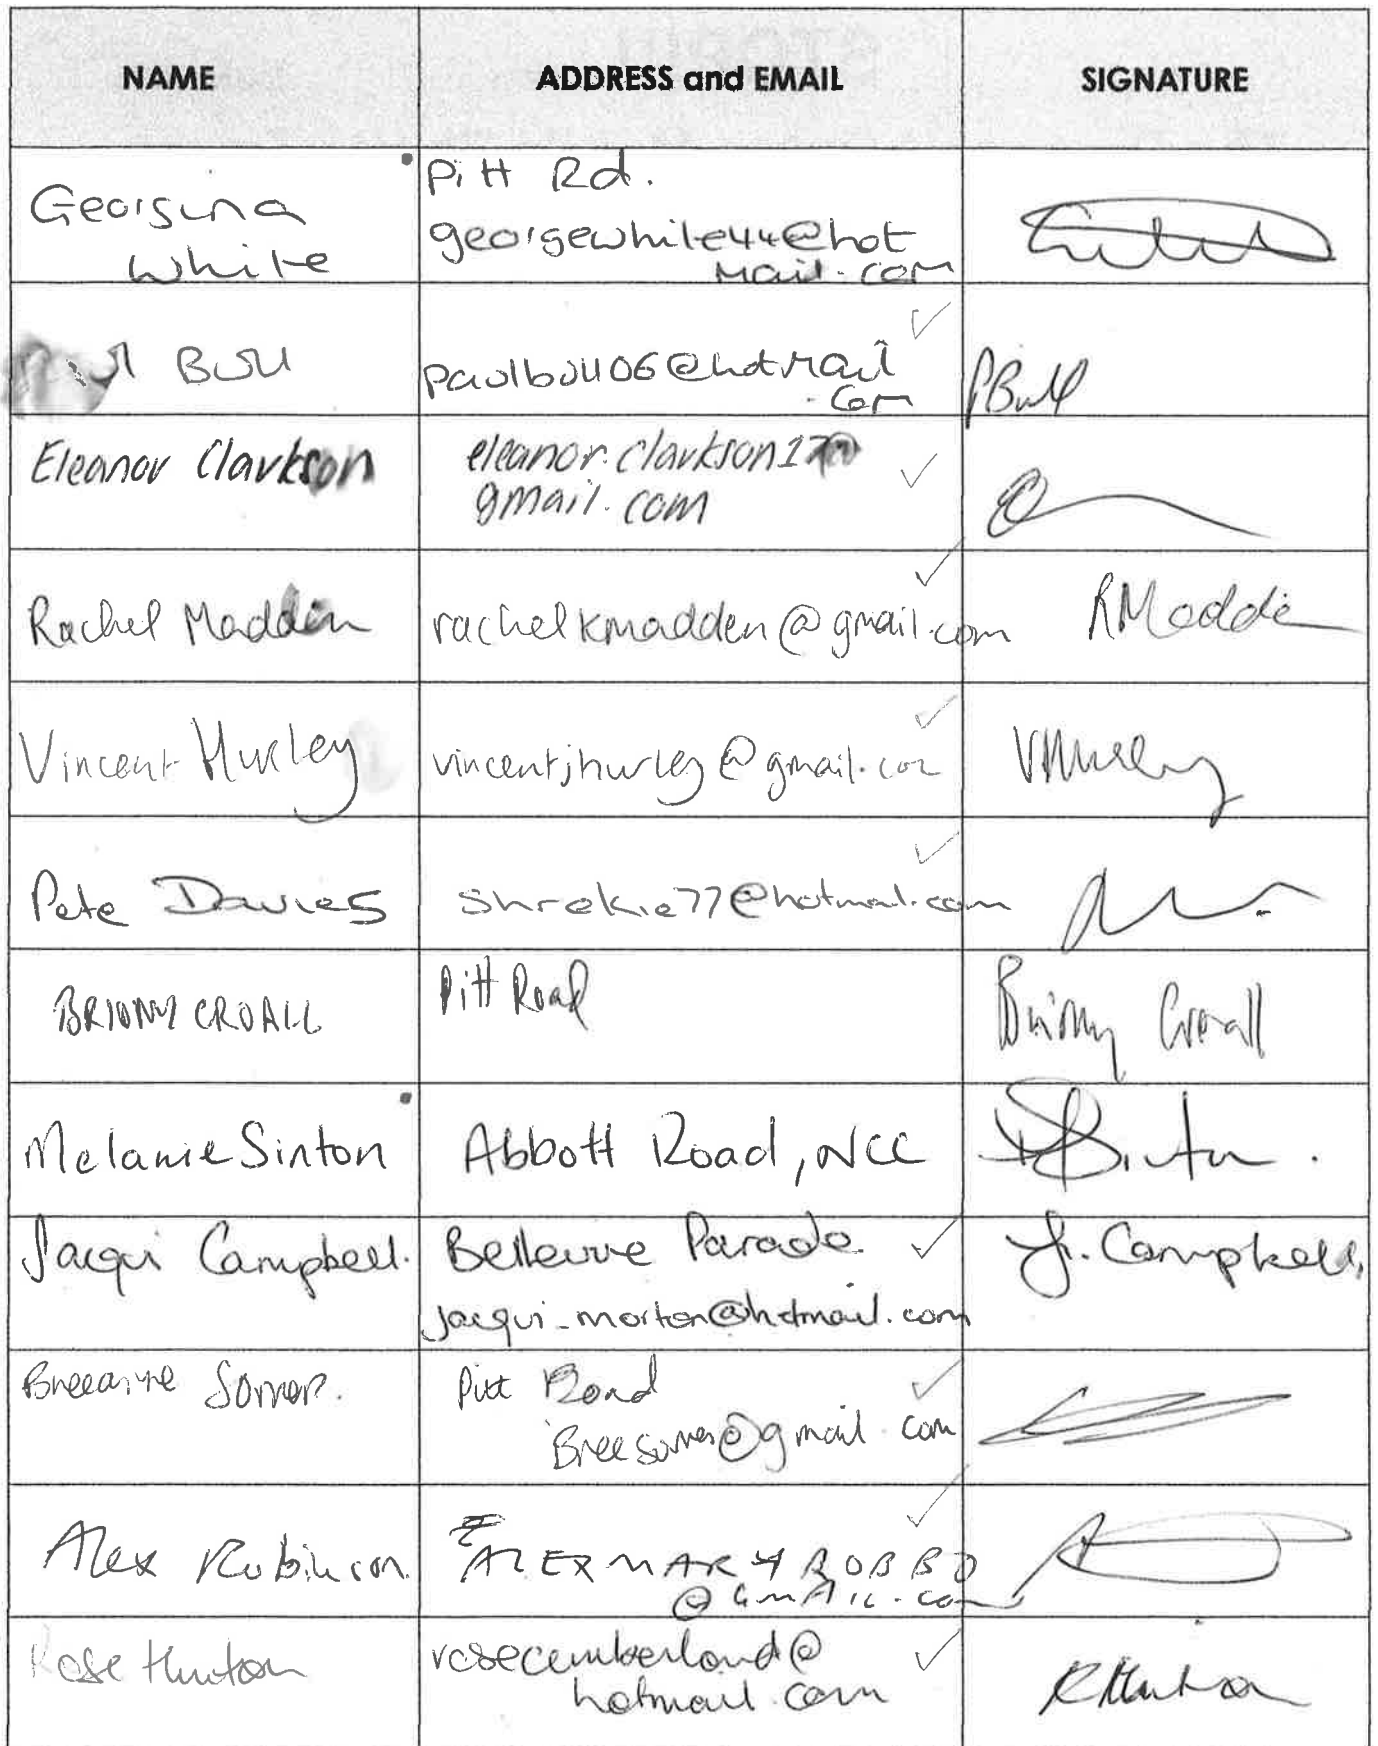 NAME ADDRESS and EMAIL SIGNATURE
Georgina
White
Pitt Rd.
georgewhite44@hot
mail.com
Bull
paulbull06@hotmail
.com
PBull
Eleanor Clarkson
eleanor.clarkson17@
gmail.com
Rachel Madden
rachelkmadden@gmail.com
RMadden
Vincent Hurley
vincentjhurley@gmail.com
VHurley
Pete Davies
shrekie77@hotmail.com
BRIONY CROALL
Pitt Road
Briony Croall
Melanie Sinton
Abbott Road, NCC
Jacqui Campbell.
Bellevue Parade
jacqui_morton@hotmail.com
J. Campbell.
Pitt Road
@gmail.com
Alex Robinson.
ALEXMARYROBBO
@GMAIL.com
Rose Hinton
rosecumberland@
hotmail.com
RHinton